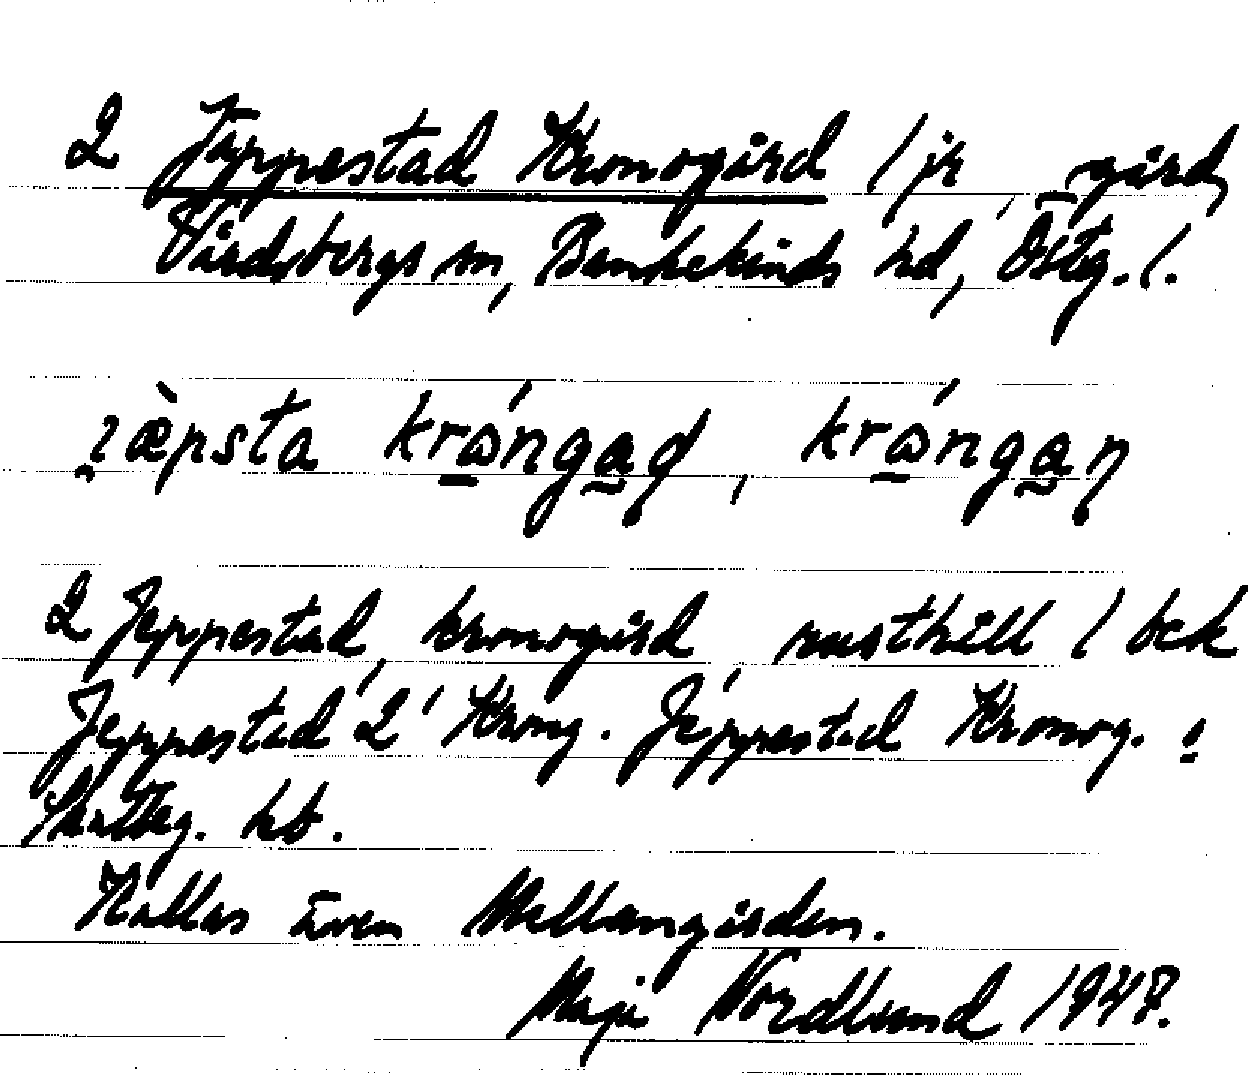 2 Jeppestad Kronogård / jr gård,
Vårdsbergs sn, Bankekinds hd, Östg. /.
kró̱nga̰d, kró̱nga̰n
2 Jeppestad, kronogård, rusthåll / bek
Jeppestad 2' Krong. Jeppestad Kronog. !
hb.
Kallas även Mellangården.
Maja Nordlund 1948.